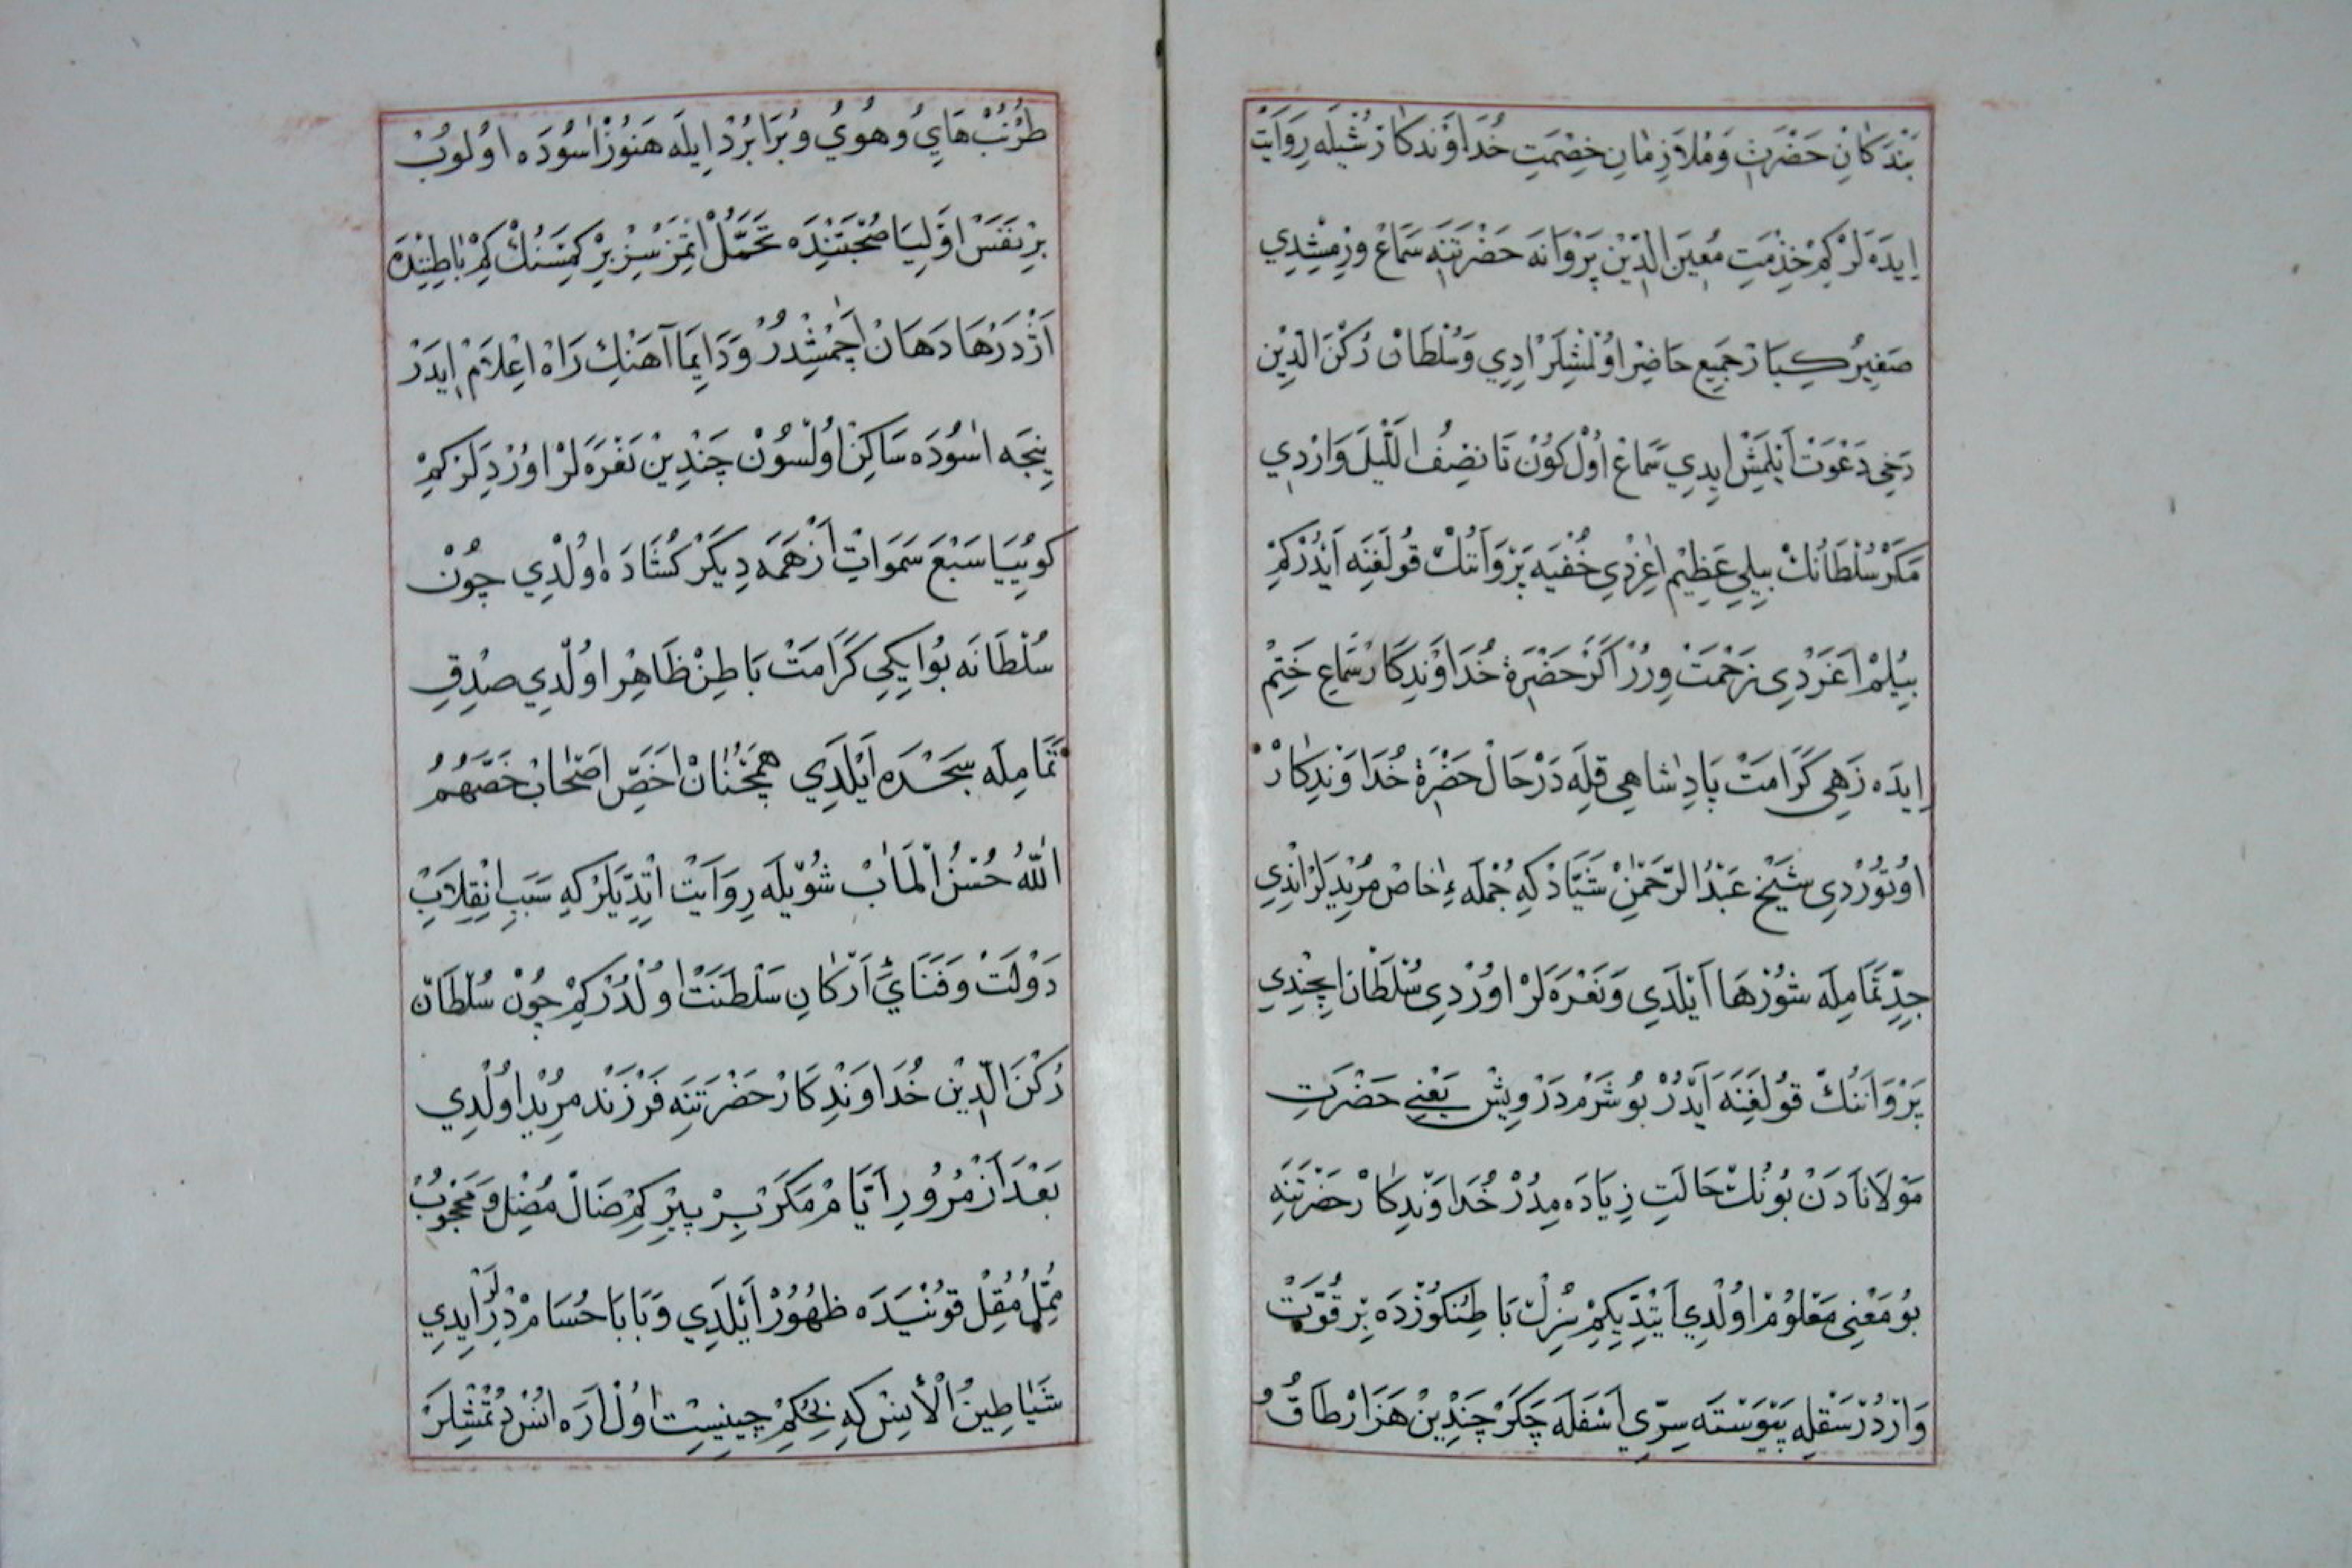 بَنْدَكَانِ حَضْرَتِ وَمُلَازِمَانِ خِضمَتِ خُدَاوَنْدكَارْ شُيلَه رِوَايَتْ
اِيدَه لَرْكِمْ خِذْمَتِ مُعِينَ الدِّينْ پَرْوَانَه حَضْرَتنَه سَمَاعْ وِرْمِشْدِي
صَغِيرُ كِبَارْ جَمِيع حَاضِرْ اوُلْمِشْلَرْ ادِي وَسُلْطَانْ رُكْنَ الدِّينْ
دَخِي دَعْوَتْ اَيْلَمِشْ ايِدِي سَمَاعْ اوُلْ كوُنْ تَا نصِفُ اللَّيلَ وَارْدِي
مَكَرْ سُلْطَانُكْ بيِلِي عَظِيمْ اغِرْدِي خُفْيَه پَرْوَانَنُكْ قوُلَغِنَه اَيْدُرْ كِمْ
بيِلُمْ اَغَرْدِي زَحْمَتْ وِرُرْ اَكَرْ حَضْرَة خُدَاوَنْدِكَارْ سَمَاعِ خَتِمْ
اِيدَه زَهِي كَرَامَتْ پَادِشَاهِي قِلَه دَرْحَالْ حَضْرَة خُدَاوَنْدِكَارْ
اوُتوُرْدِي شَيْخ عَبْدُ الرَّحْمَنْ شَيَّادْ كِه جُمْلَهءِ خَاصْ مُرِيدلَرْانْدِي
جِدِّ تَمَامِلَه شوُرْهَا اَيْلَدِي وَنَعْرَه لَرْ اوُرْدِي سُلْطَانْ اِيچِنْدِي
پَرْوَانَنُكْ قوُلَغِنَه اَيْدُرْ بوُ شَرْم دَرْوِيشْ يَعْنِي حَضْرَتِ
مَوْلَانَادَنْ بوُنُكْ حَالَتِ زِيَادَه مِدُرْ خُدَاوَنْدِكَارْ حَضْرَتنَه
بوُ مَعْنِي مَعْلوُمْ اوُلْدِي اَيْتْدِيكِمْ سُزِكْ بَاطِنكوُزْدَه بِرْ قُوَّتْ
وَارْدُرْ سَقْلِه پَيْوَسْتَه سِرِّي اَسْفَلَه چَكَرْ چَنْدِينْ هَزَارْ طَاقُ
طُرُنْبْ هَايِ وهُوُيُ وبَرَابُرْد اِيلَه هَنوُزْ اسُودَه اوُلوُبْ
بِرْ نَفَسْ اوَلِيَا صُحْبَتِنْدَه تَحَمُّلْ اتِمَزْسِزْ بِرْ كِمْسَنُكْ كِمْ بَاطِنِنْدَه
اَژْدَرْهَا دَهَانْ اَچْمِشْدُرْ وَدَايِمَا آهَنْكِ رَاهْ اعِلَامْ ايِدَرْ
نِيجَه اسُودَه سَاكِنْ اوُلْسوُنْ چَنْدِينْ نَعْرَه لَرْ اوُرْدِلَرْكِمْ
كوُيِيَا سَبْعَ سَمَوَاتِ اَزْ هَمَه دِيكَرْ كُشَادَه اوُلْدِي چوُنْ
سُلْطَانَه بوُ ايكِي كَرَامَتْ بَاطِنْ ظَاهِرْ اوُلْدِي صِدْقِ
تَمَامِلَه سَجْدَه اَيْلَدِي هَمچُنَانْ اَخَصِّ اَصْحَابْ خَصَّهُمُ
اللّٰهُ حُسْنُ الْمَاَبْ شوُيْلَه رِوَايَتْ اتِدِّيلَرْ كِه سَبَبِ انْقِلَابِ
دَوْلَتْ وَفَنَايِ اَرْكَانِ سَلْطَنَتْ اوُلْدُرْكِمْ چوُنْ سُلْطَانْ
رُكْنَ الدِّينْ خُدَاوَنْدِكَارْ حَضْرَتِنَه فَرْزَنْد مرِيْد اوُلْدِي
بَعْدَ اَزْ مُرُورِ اَيَّامْ مَكَرْ بِرْ پيِرْكِمْ ضَالْ مُضِلْ وَمَحْجوُبْ
مُمِلْ مُقِلْ قوُنْيَدَه ظهُوُرْ اَيْلَدِي وَبَابَا حُسَامْ دَرْلَرْايِدِي
شَيَاطِينُ الْأنِسْ كِه بِحُكِمْ اوُلْ ارَه انُسْ دُتْمِشْلَرْ